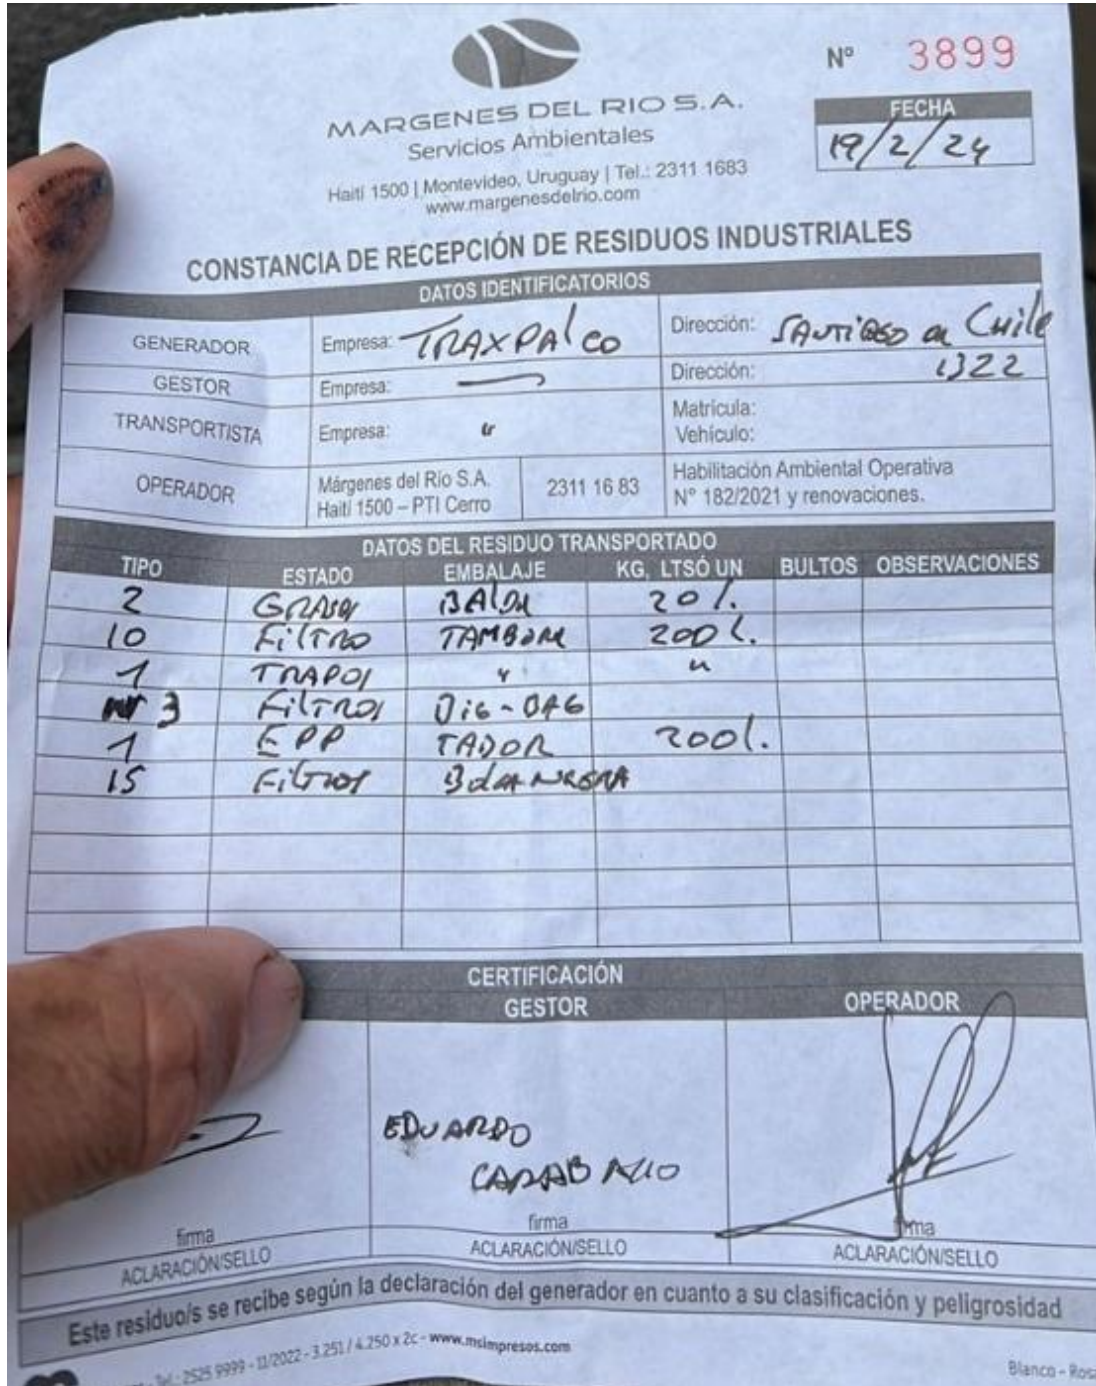 Nº 3899
MARGENES DEL RIO S.A.
Servicios Ambientales
Haití 1500 | Montevideo, Uruguay | Tel.: 2311 1683
www.margenesdelrio.com
FECHA
19/2/24
CONSTANCIA DE RECEPCIÓN DE RESIDUOS INDUSTRIALES
DATOS IDENTIFICATORIOS
GENERADOR Empresa: TRAXPALCO Dirección: SANTIAGO de Chile
GESTOR Empresa: — Dirección: 1322
TRANSPORTISTA Empresa: " Matrícula:
Vehículo:
OPERADOR Márgenes del Río S.A. 2311 16 83 Habilitación Ambiental Operativa
Haití 1500 – PTI Cerro Nº 182/2021 y renovaciones.
DATOS DEL RESIDUO TRANSPORTADO
TIPO ESTADO EMBALAJE KG, LTSÓ UN BULTOS OBSERVACIONES
2 GRASA 20 l.
10 FILTRO TAMBOR 200 l.
1 TRAPOS " "
3 FILTROS BIG-BAG
1 EPP 200 l.
15 FILTROS BOLSA NEGRA
CERTIFICACIÓN
GESTOR OPERADOR
EDUARDO
CARABALLO
firma firma firma
ACLARACIÓN/SELLO ACLARACIÓN/SELLO ACLARACIÓN/SELLO
Este residuo/s se recibe según la declaración del generador en cuanto a su clasificación y peligrosidad
Tel.: 2525 9999 - 11/2022 - 3.251 / 4.250 x 2c - www.msimpresos.com
Blanco - Ros